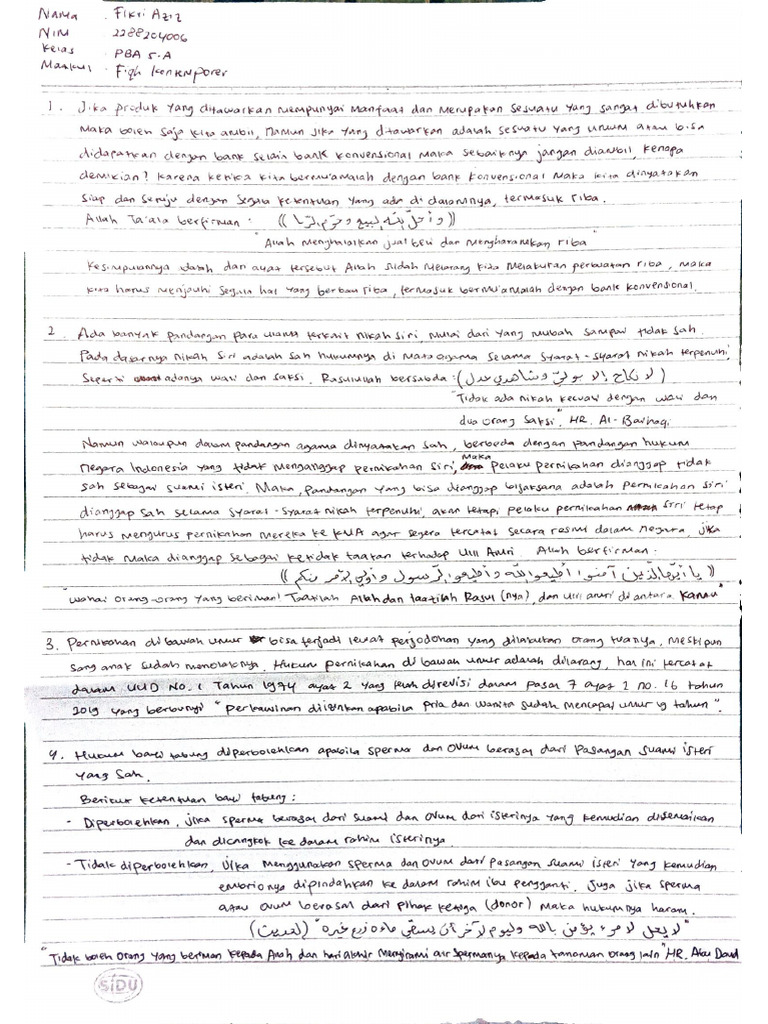 Nama : Fikri Aziz
NIM : 2288204006
Kelas : PBA 5-A
Matkul : Fiqh Kontemporer
1. Jika produk yang ditawarkan mempunyai manfaat dan merupakan sesuatu yang sangat dibutuhkan
maka boleh saja kita ambil, Namun jika yang ditawarkan adalah sesuatu yang umum atau bisa
didapatkan dengan bank selain bank konvensional maka sebaiknya jangan diambil, kenapa
demikian? karena ketika kita bermu'amalah dengan bank konvensional maka kita dinyatakan
siap dan setuju dengan segala ketentuan yang ada di dalamnya, termasuk riba.
Allah Ta'ala berfirman : ((وأحل الله لبيع وحرم لربا))
"Allah menghalalkan jual beli dan mengharamkan riba"
Kesimpulannya ialah dari ayat tersebut Allah sudah melarang kita melakukan perbuatan riba, maka
kita harus menjauhi segala hal yang berbau riba, termasuk bermu'amalah dengan bank konvensional.
2. Ada banyak pandangan para ulama terkait nikah siri, mulai dari yang mubah sampai tidak sah.
Pada dasarnya nikah siri adalah sah hukumnya di mata agama selama syarat-syarat nikah terpenuhi,
seperti adanya wali dan saksi. Rasulullah bersabda : (لا نكاح إلا بولي وشاهدي عدل)
"Tidak ada nikah kecuali dengan wali dan
dua orang saksi". HR. Al-Baihaqi
Namun walaupun dalam pandangan agama dinyatakan sah, berbeda dengan pandangan hukum
negara Indonesia yang tidak menganggap pernikahan siri, Maka pelaku pernikahan dianggap tidak
sah sebagai suami isteri. Maka, pandangan yang bisa dianggap bijaksana adalah pernikahan siri
dianggap sah selama syarat-syarat nikah terpenuhi, akan tetapi pelaku pernikahan siri tetap
harus mengurus pernikahan mereka ke KUA agar segera tercatat secara resmi dalam negara, jika
tidak maka dianggap sebagai ketidak taatan terhadap Ulil Amri. Allah berfirman :
((يا أيها الذين آمنوا أطيعوا الله وأطيعوا لرسول وأولي لأمر منكم))
"wahai orang-orang yang beriman! Taatilah Allah dan taatilah Rasul (nya), dan Ulil amri di antara kamu"
3. Pernikahan dibawah umur bisa terjadi lewat perjodohan yang dilakukan orang tuanya, meskipun
sang anak sudah menolaknya. Hukum pernikahan di bawah umur adalah dilarang, hal ini tercatat
dalam UUD No. 1 Tahun 1974 ayat 2 yang telah direvisi dalam pasal 7 ayat 1 no. 16 tahun
2019 yang berbunyi "perkawinan diizinkan apabila pria dan wanita sudah mencapai umur 19 tahun".
4. Hukum bayi tabung diperbolehkan apabila sperma dan ovum berasal dari pasangan suami isteri
yang sah.
Berikut ketentuan bayi tabung :
- Diperbolehkan, jika sperma berasal dari suami dan ovum dari isterinya yang kemudian disemaikan
dan dicangkok ke dalam rahim isterinya.
- Tidak diperbolehkan, jika menggunakan sperma dan ovum dari pasangan suami isteri yang kemudian
embrionya dipindahkan ke dalam rahim ibu pengganti. Juga jika sperma
atau ovum berasal dari pihak ketiga (donor) maka hukumnya haram.
"لا يحل لامرء يؤمن بالله وليوم لآخر أن يسقي ماءه زرع غيره" (الحديث)
"Tidak boleh orang yang beriman kepada Allah dan hari akhir menyirami air spermanya kepada tanaman orang lain" HR. Abu Daud
SIDU